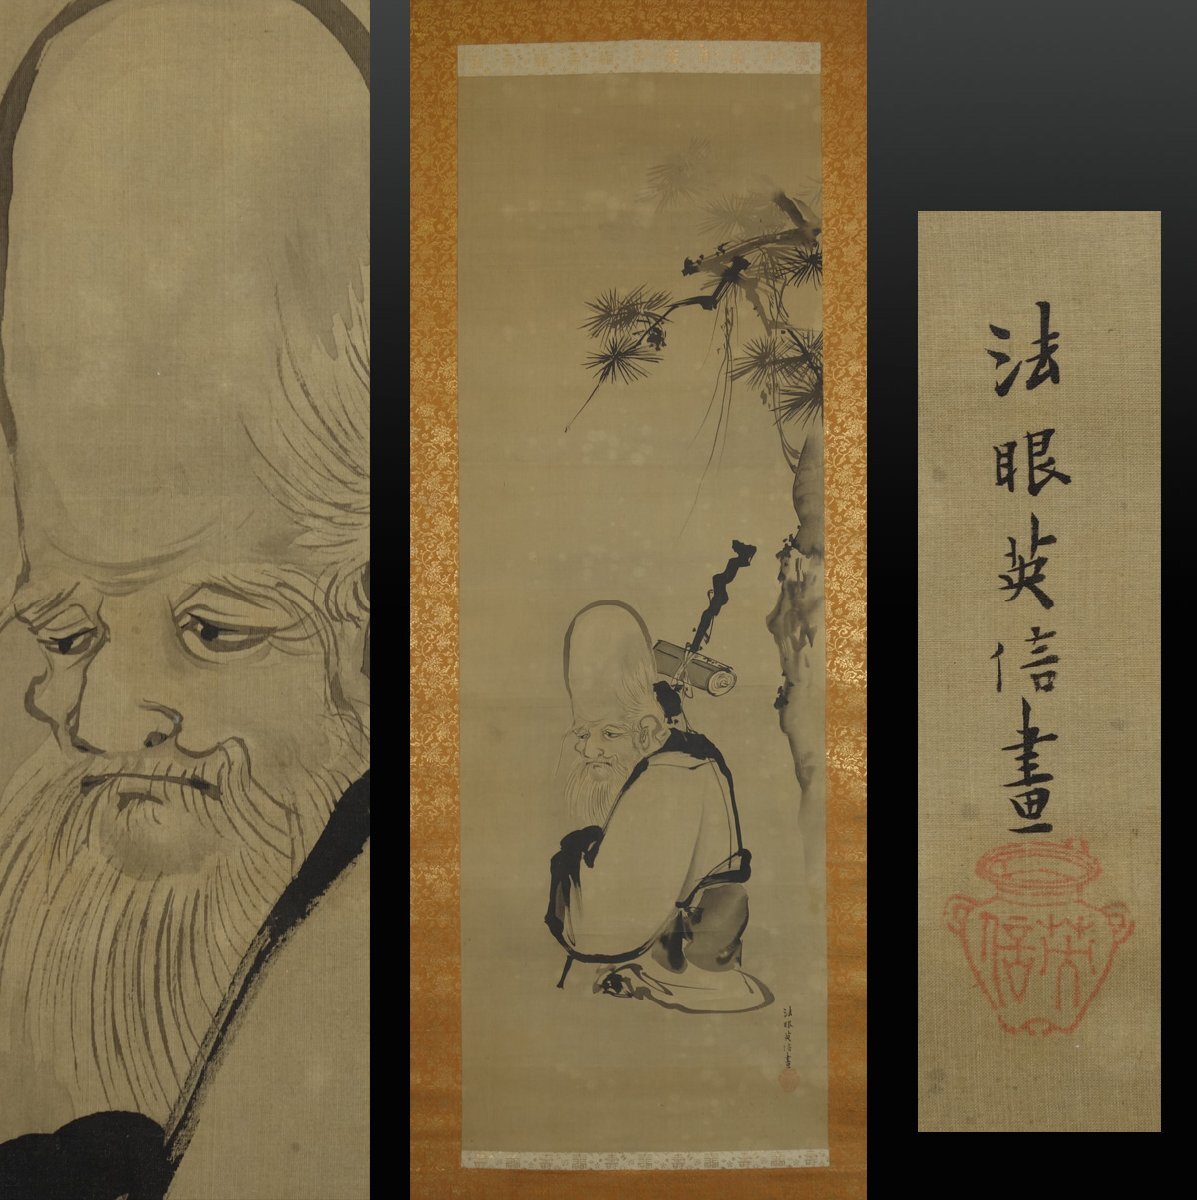 法眼英信畫
英信
法眼英信畫